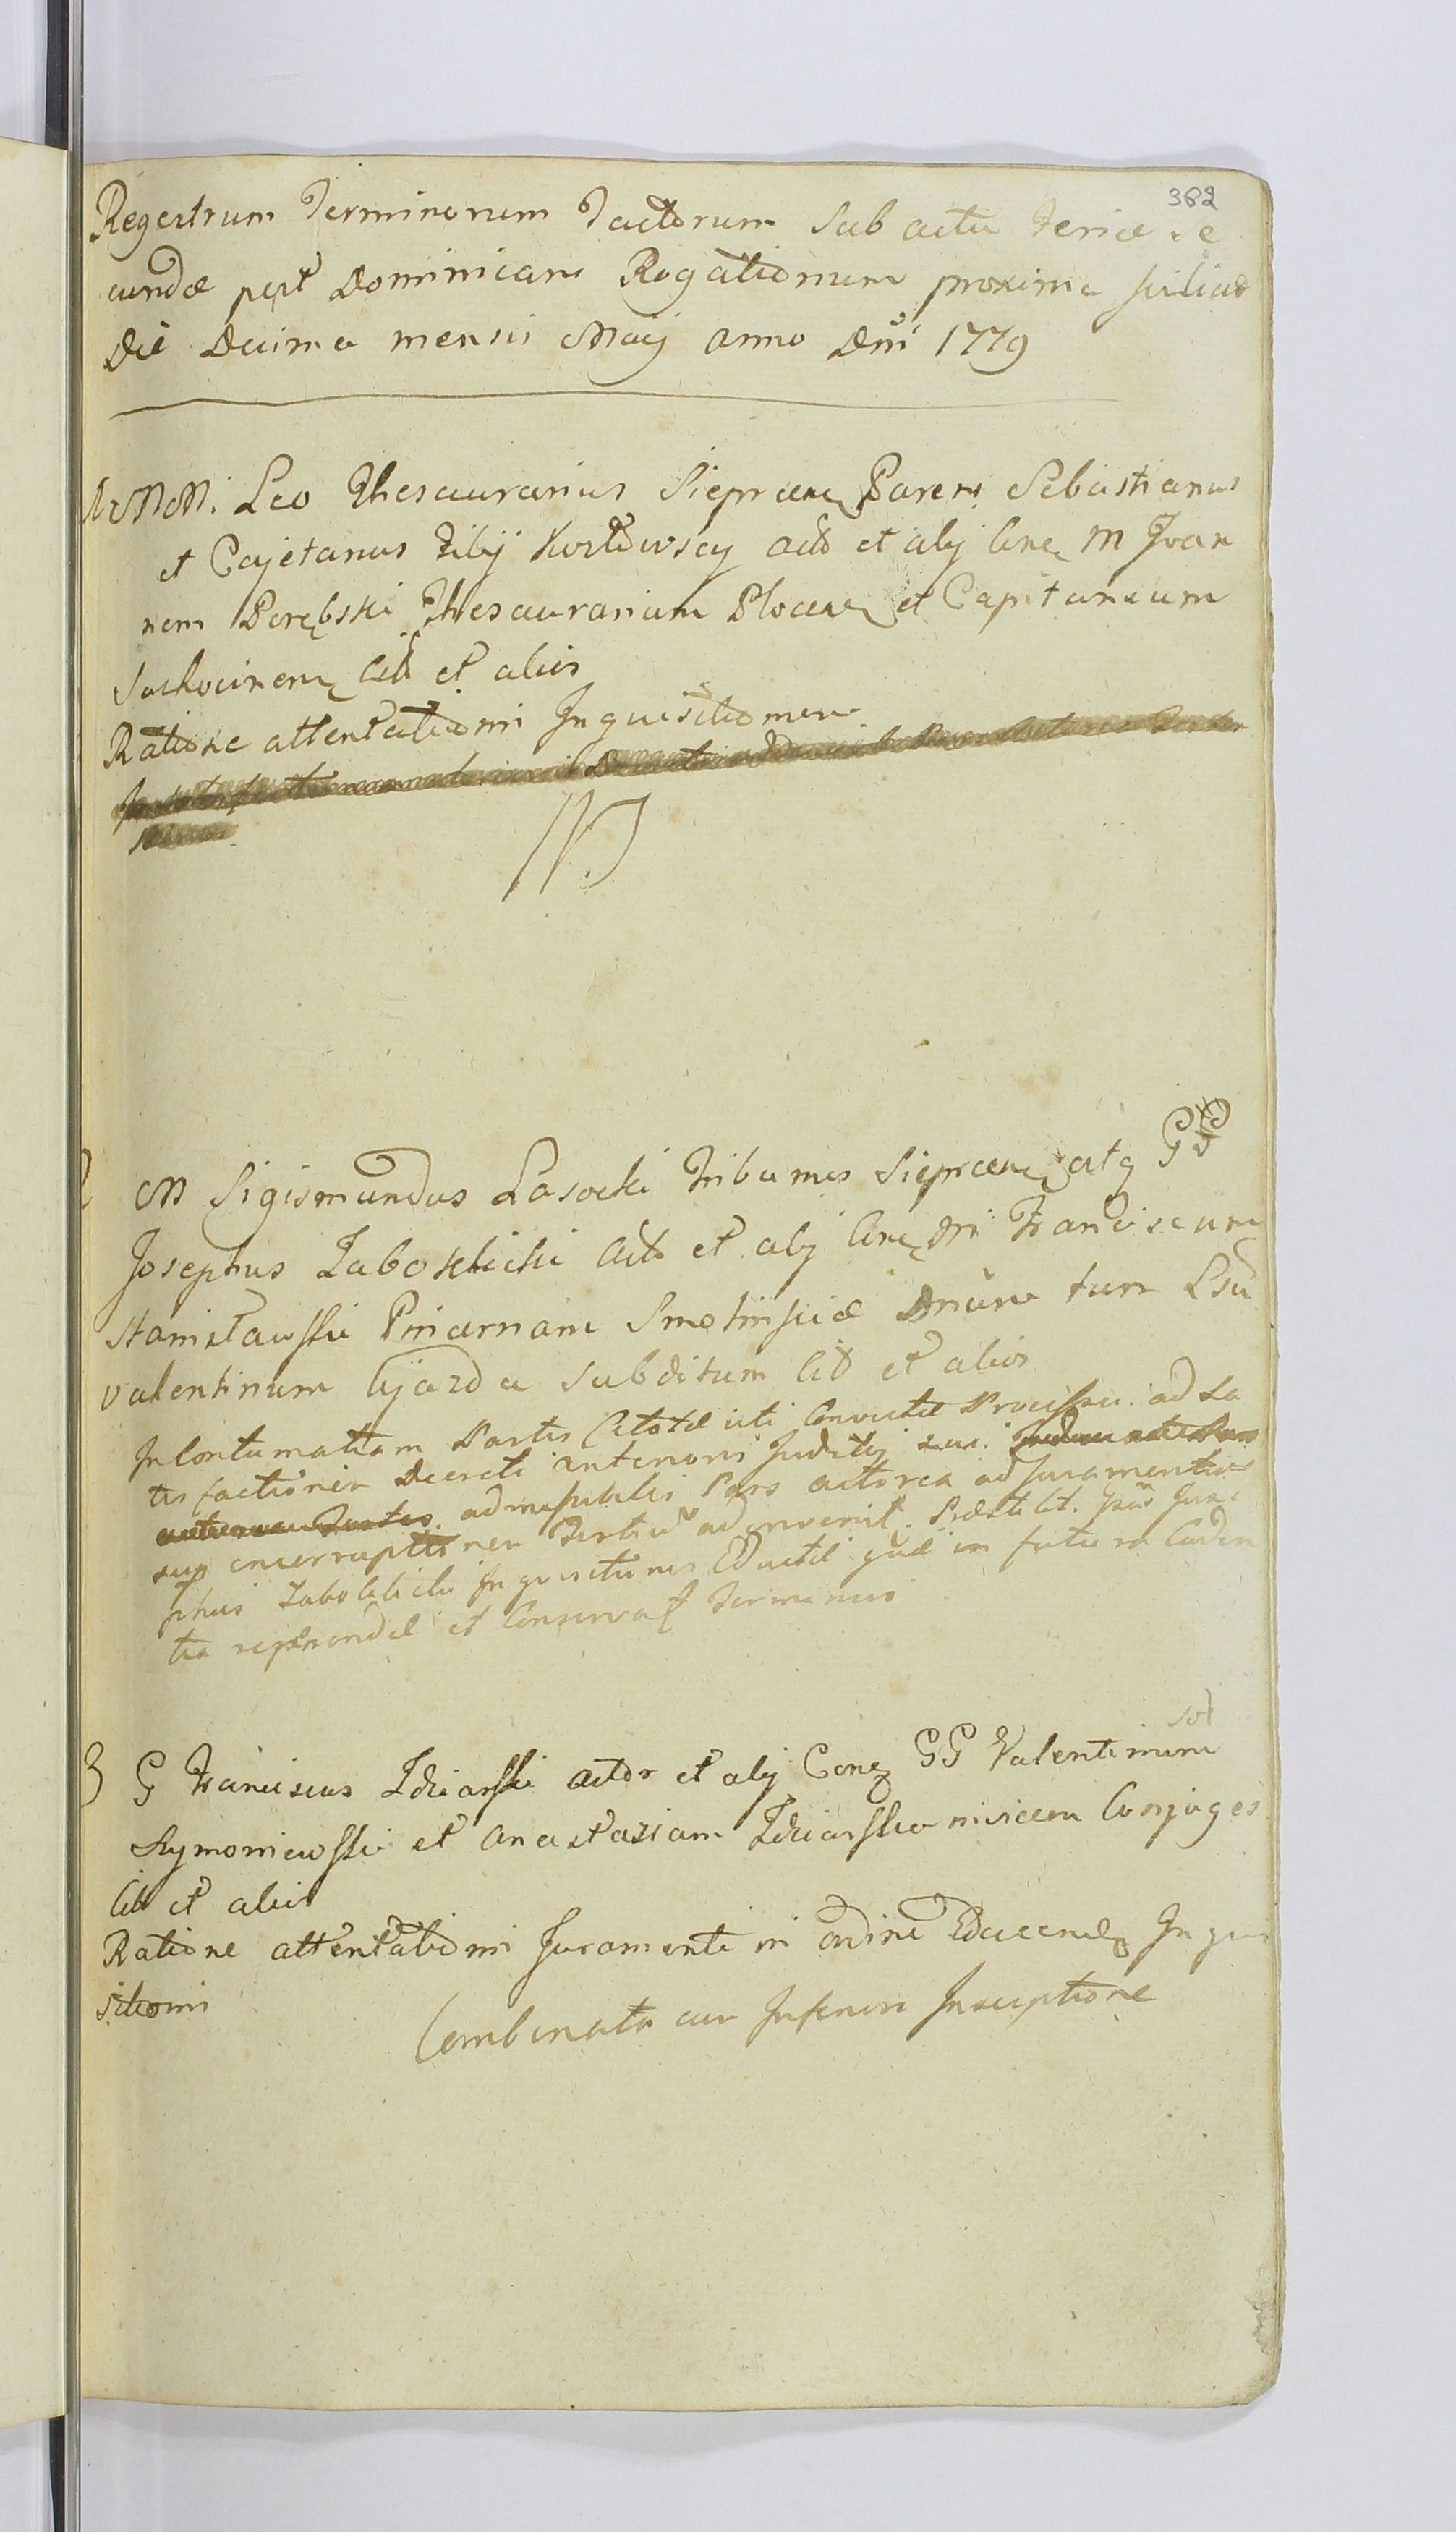 382
Regestrum Terminorum Tactorum Sub actu Feriæ Se
cundæ post Dominicam Rogationum proxima scilicet
Die Decima mensis Maij Anno Dni 1779
MM. Leo Thesaurarius Sieprcen Parens Sebastianus
et Cajetanus Filij Kozłowscy act et alij cne M Joan
nem Porębski Thesaurarium Plocen et Capitaneum
Sochocinen Cit et alios
Ratione attentationis Inquisitionum
2 M Sigismundus Lasocki Tribunus Sieprcen atq G
Josephus Zabokłicki Act et alij cne M Franciscum
Stanisławski Pincernam Smolinsciæ Dnum tum Lsu
Valentinum Gjazda subditum Cit et alios
In Contumatiam Partis Citatæ uti Convictæ Processu ad sa
tisfactionem Decreti anterioris Judicij sui
admissibilis Pars actorea ad Juramentum
super interruptionem Tertiu adinvenit. Præstitit. Jose
phus Zaboklicki Inquisitiones Eductæ quæ in futura Caden
tia reproducendæ et Conservat Terminus
sol
3 G Franciscus Zdziarski actor et alij Cone GG Valentinum
Szymoniewski et Anastasiam Zdziarskie invicem Conjuges
Cit et alios
Ratione attentationis Juramenti in ordine Educend Inqui
sitionis
Combinata cum Inferiori Inscriptione